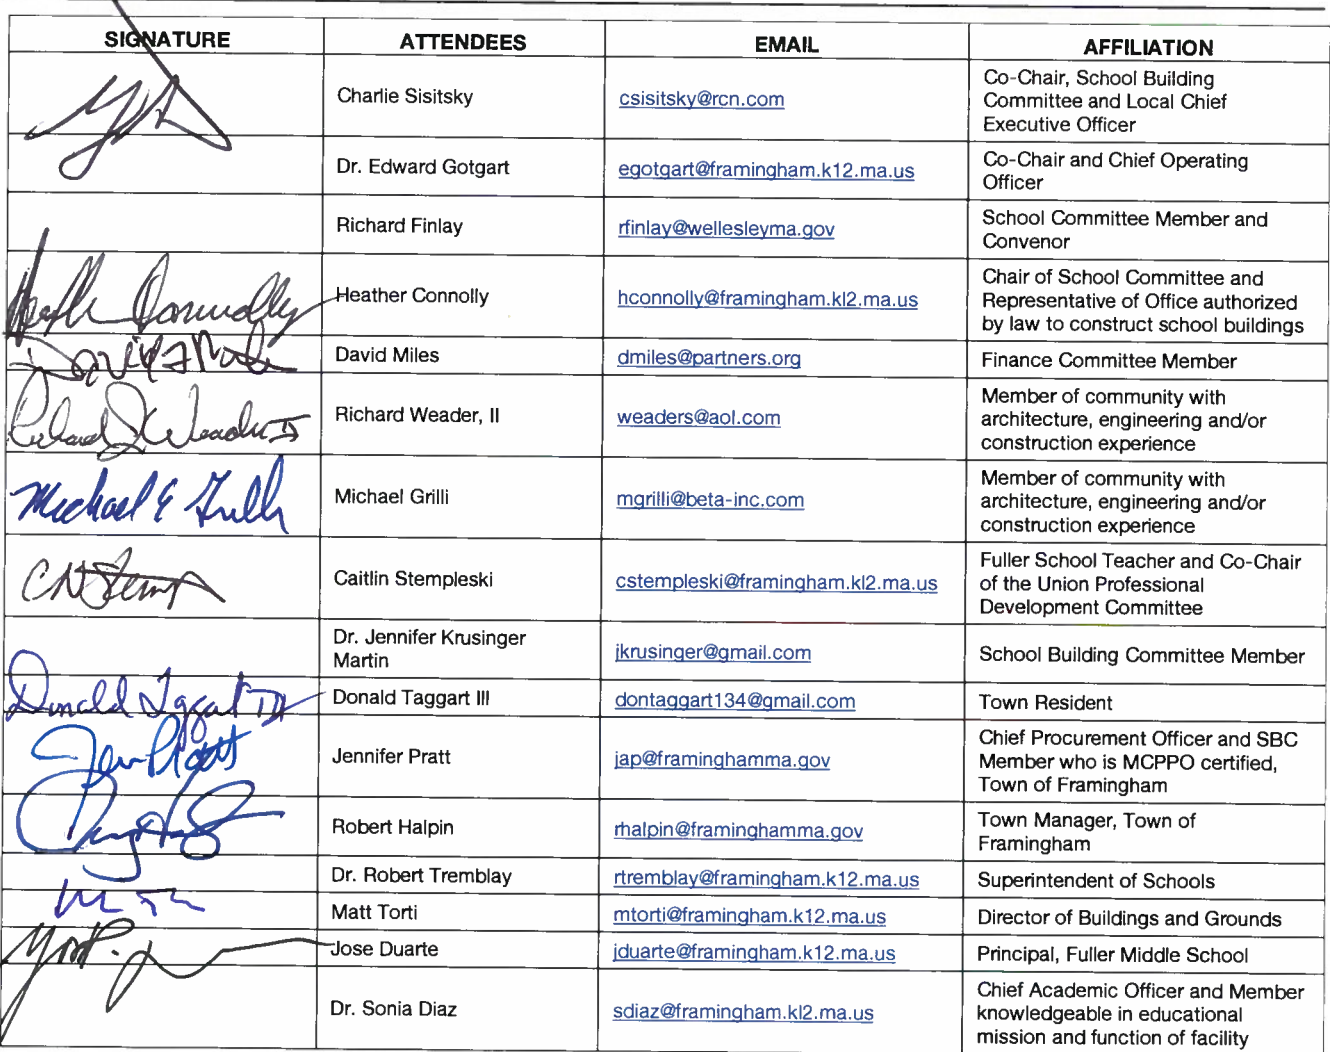 SIGNATURE ATTENDEES EMAIL AFFILIATION
Charlie Sisitsky csisitsky@rcn.com Co-Chair, School Building
Committee and Local Chief
Executive Officer
Dr. Edward Gotgart egotgart@framingham.k12.ma.us Co-Chair and Chief Operating
Officer
Richard Finlay rfinlay@wellesleyma.gov School Committee Member and
Convenor
Heather Connolly hconnolly@framingham.kl2.ma.us Chair of School Committee and
Representative of Office authorized
by law to construct school buildings
David Miles dmiles@partners.org Finance Committee Member
Richard J Weader II Richard Weader, II weaders@aol.com Member of community with
architecture, engineering and/or
construction experience
Michael E Grilli Michael Grilli mgrilli@beta-inc.com Member of community with
architecture, engineering and/or
construction experience
CNStemp Caitlin Stempleski cstempleski@framingham.kl2.ma.us Fuller School Teacher and Co-Chair
of the Union Professional
Development Committee
Dr. Jennifer Krusinger
Martin jkrusinger@gmail.com School Building Committee Member
Donald Taggart III Donald Taggart III dontaggart134@gmail.com Town Resident
Jen Pratt Jennifer Pratt jap@framinghamma.gov Chief Procurement Officer and SBC
Member who is MCPPO certified,
Town of Framingham
Robert Halpin rhalpin@framinghamma.gov Town Manager, Town of
Framingham
Dr. Robert Tremblay rtremblay@framingham.k12.ma.us Superintendent of Schools
Matt Torti mtorti@framingham.k12.ma.us Director of Buildings and Grounds
Jose Duarte jduarte@framingham.k12.ma.us Principal, Fuller Middle School
Dr. Sonia Diaz sdiaz@framingham.kl2.ma.us Chief Academic Officer and Member
knowledgeable in educational
mission and function of facility